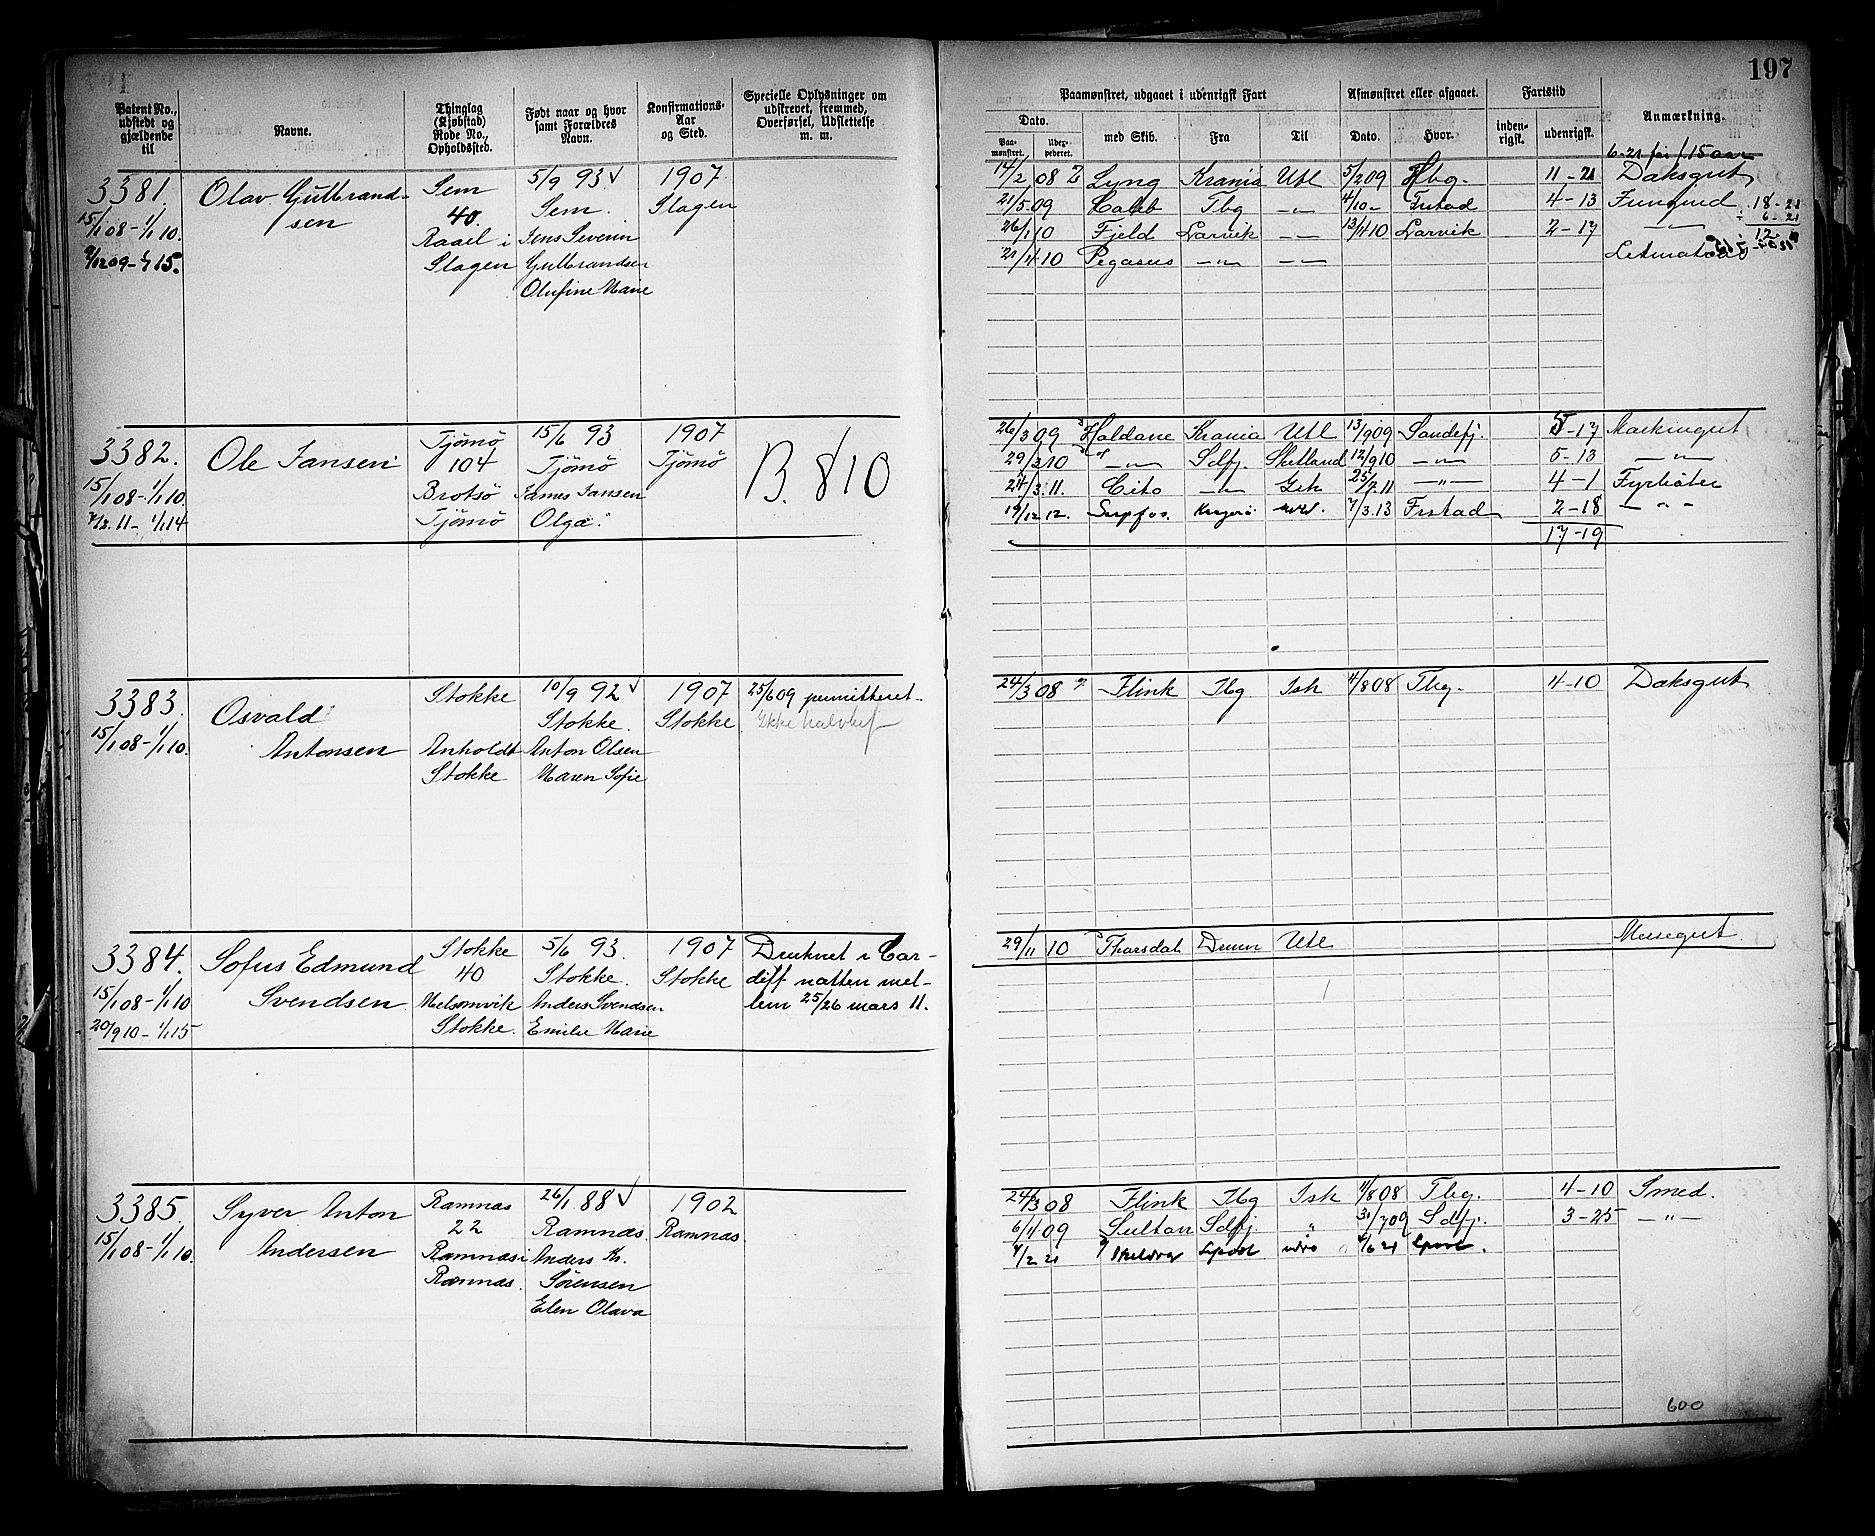 197
Patent No., udstedt og gjældende til
Navne.
Thinglag (Kjøbstad) Rode No., Opholdssted.
Født naar og hvor samt Forældres Navn.
Konfirmations-Aar og Sted.
Specielle Oplysninger om udskrevet, fremmed, Overførsel, Udslettelse m. m.
Paamønstret, udgaaet i udenrigsk Fart
Afmønstret eller afgaaet.
Fartstid
Anmærkning.
Dato.
med Skib.
Fra
Til
Dato.
Hvor.
inden-rigsk.
udenrigsk.
Paa-mønstret.
3381.
15/1 08 - 1/1 10.
Olav Gulbrand-
sen
Sem
40.
Raael i
Slagen
5/9 93 √
Sem.
Jens Severin
Gulbrandsen
Olufine Marie
1907.
Slagen
14/2 08 Lyng Krania Utl 5/2 09 Hbg. 11-21 Daksgut
21/5 09 Caleb Tbg -„- 4/10 - Frstad 4-13 Jungmd
26/1 10 Fjeld Larvik -„- 13/4 10 Larvik 2-17 -„-
21/4 10 Pegasus -„- -„- Letmatros
18-21
6-21
3382.
15/1 08 - 1/1 10.
7/3. 11 - 1/1 14
Ole Jansen
Tjömö
104
Brotsö
Tjömö
15/6 93
Tjömö
James Jansen
Olga.
1907
Tjömö
B. 810
26/3 09 Haldane Krania Utl 13/9 09 Sandefj. 5-17 Maskingut
29/3 10 -„- Sdfj. Shetland 12/9 10 -„- 5-13 -„-
24/3. 11. Cito -„- 25/7. 11 -„- 4-1 Fyrböter
19/12 12. Supfos. 7/3. 13 Frstad 2-18 -„-
17-19
3383.
15/1 08 - 1/1 10.
Osvald
Antonsen
Stokke
Anholdt
Stokke
10/9 92 √
Stokke.
Anton Olsen
Maren Sofie
1907
Stokke
25/6 09 permitteret
Ikke
24/3 08 Flink Tbg Ish 4/8 08 Tbg. 4-10 Daksgut
3384.
15/1 08 - 1/1 10
20/9 10 - 1/1 15
Sofus Edmund
Svendsen
Stokke
40
Melsomvik
Stokke.
5/6 93.
Stokke.
Anders Svendsen
Emilie Marie
1907
Stokke
Druknet i Car-
diff natten mel-
lem 25/26 mars 11.
29/11 10 Thorsdal Dramn Utl Messegut.
3385.
15/1 08 - 1/1 10.
Syver Anton
Andersen
Ramnæs
22
Ramnæs i
Ramnæs.
26/1 88 √
Ramnæs.
Anders Th.
Sörensen
Elen Olava
1902
Ramnæs.
24/3 08 Flink Tbg Ish 4/8 08 Tbg. 4-10 Smed.
6/4 09 Sultan Sdfj. „ 31/7 09 Sdfj. 3-25 -„-
600